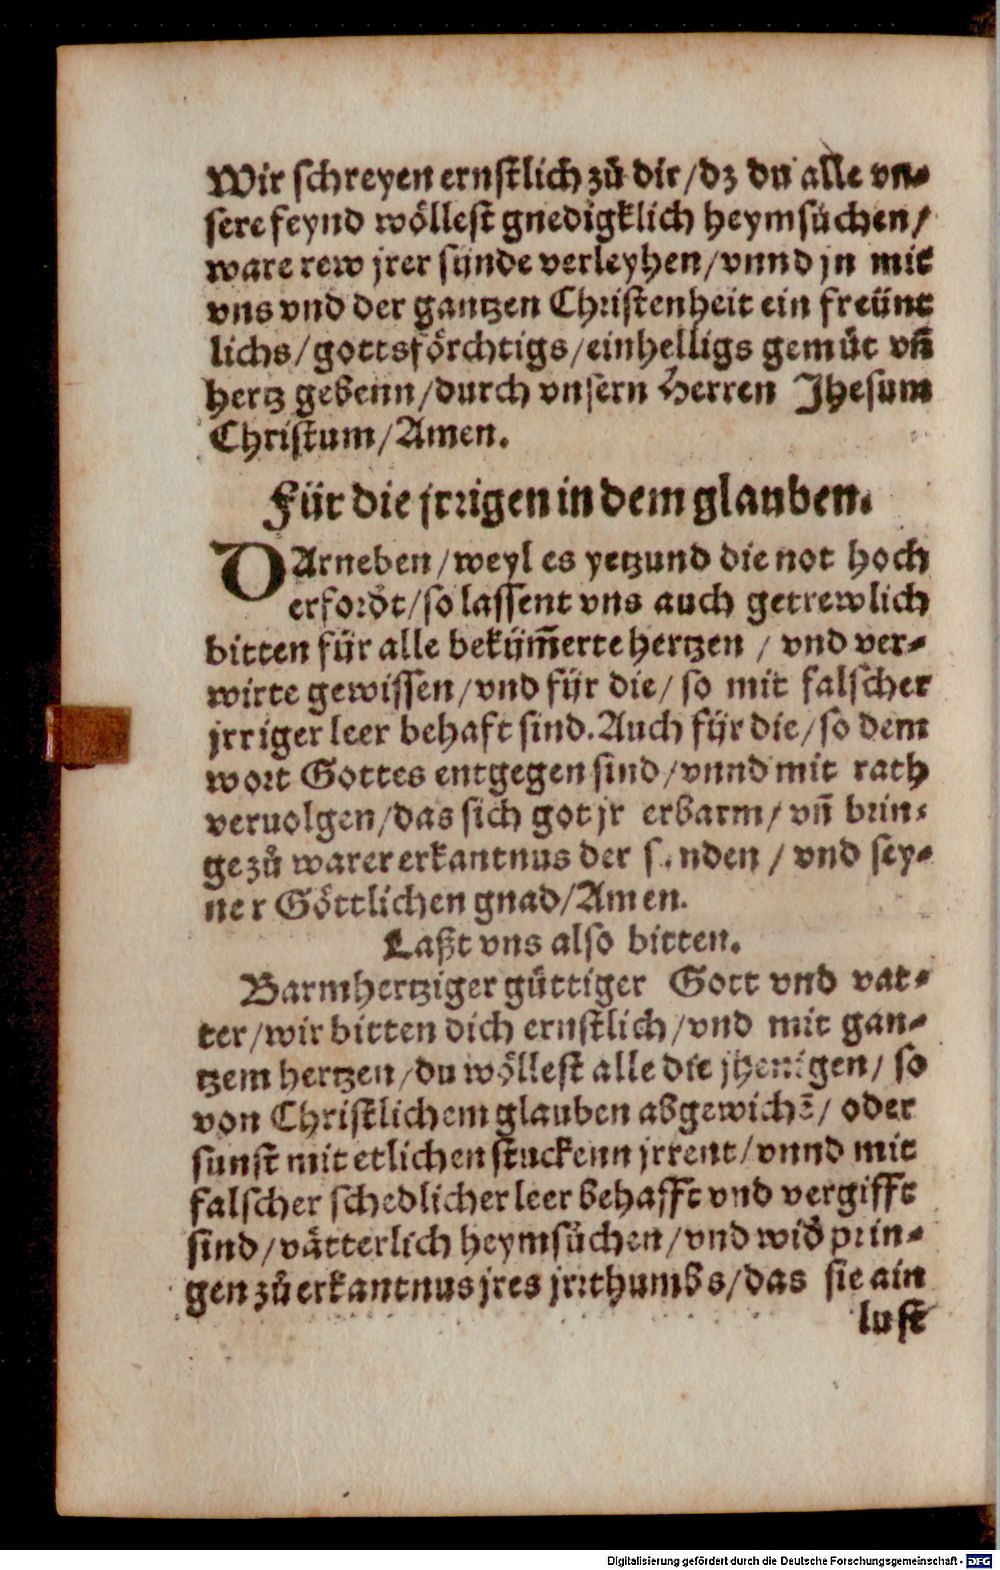 Wir schreyen ernstlich zů dir/dz du alle vn⸗
sere feynd wöllest gnedigklich heymsůchen/
ware rew jrer sünde verleyhen/vnnd jn mit
vns vnd der gantzen Christenheit ein freünt
lichs/gottsförchtigs/einhelligs gemüt vn̄
hertz gebenn/durch vnsern Herren Jhesum
Christum/Amen.
Für die jrrigen in dem glauben.
DArneben/weyl es yetzund die not hoch
erfordt/so lassent vns auch getrewlich
bitten für alle bekūm̄erte hertzen / vnd ver⸗
wirte gewissen/vnd für die/so mit falscher
jrriger leer behaft sind.Auch für die/so dem
wort Gottes entgegen sind/vnnd mit rath
veruolgen/das sich got jr erbarm/vn̄ brin⸗
ge zů warer erkantnus der s nden / vnd sey⸗
ner Göttlichen gnad/Amen.
Laßt vns also bitten.
Barmhertziger güttiger Gott vnd vat⸗
ter/wir bitten dich ernstlich/vnd mit gan⸗
tzem hertzen/du wöllest alle die jhenigen/ so
von Christlichem glauben abgewichē/ oder
sunst mit etlichen stuckenn jrrent/vnnd mit
falscher schedlicher leer behafft vnd vergifft
sind/vätterlich heymsůchen/vnd wid̕ prin⸗
gen zů erkantnus jres jrrthumbs/das sie ain
lust
Digitalisierung gefördert durch die Deutsche Forschungsgemeinschaft - DFG